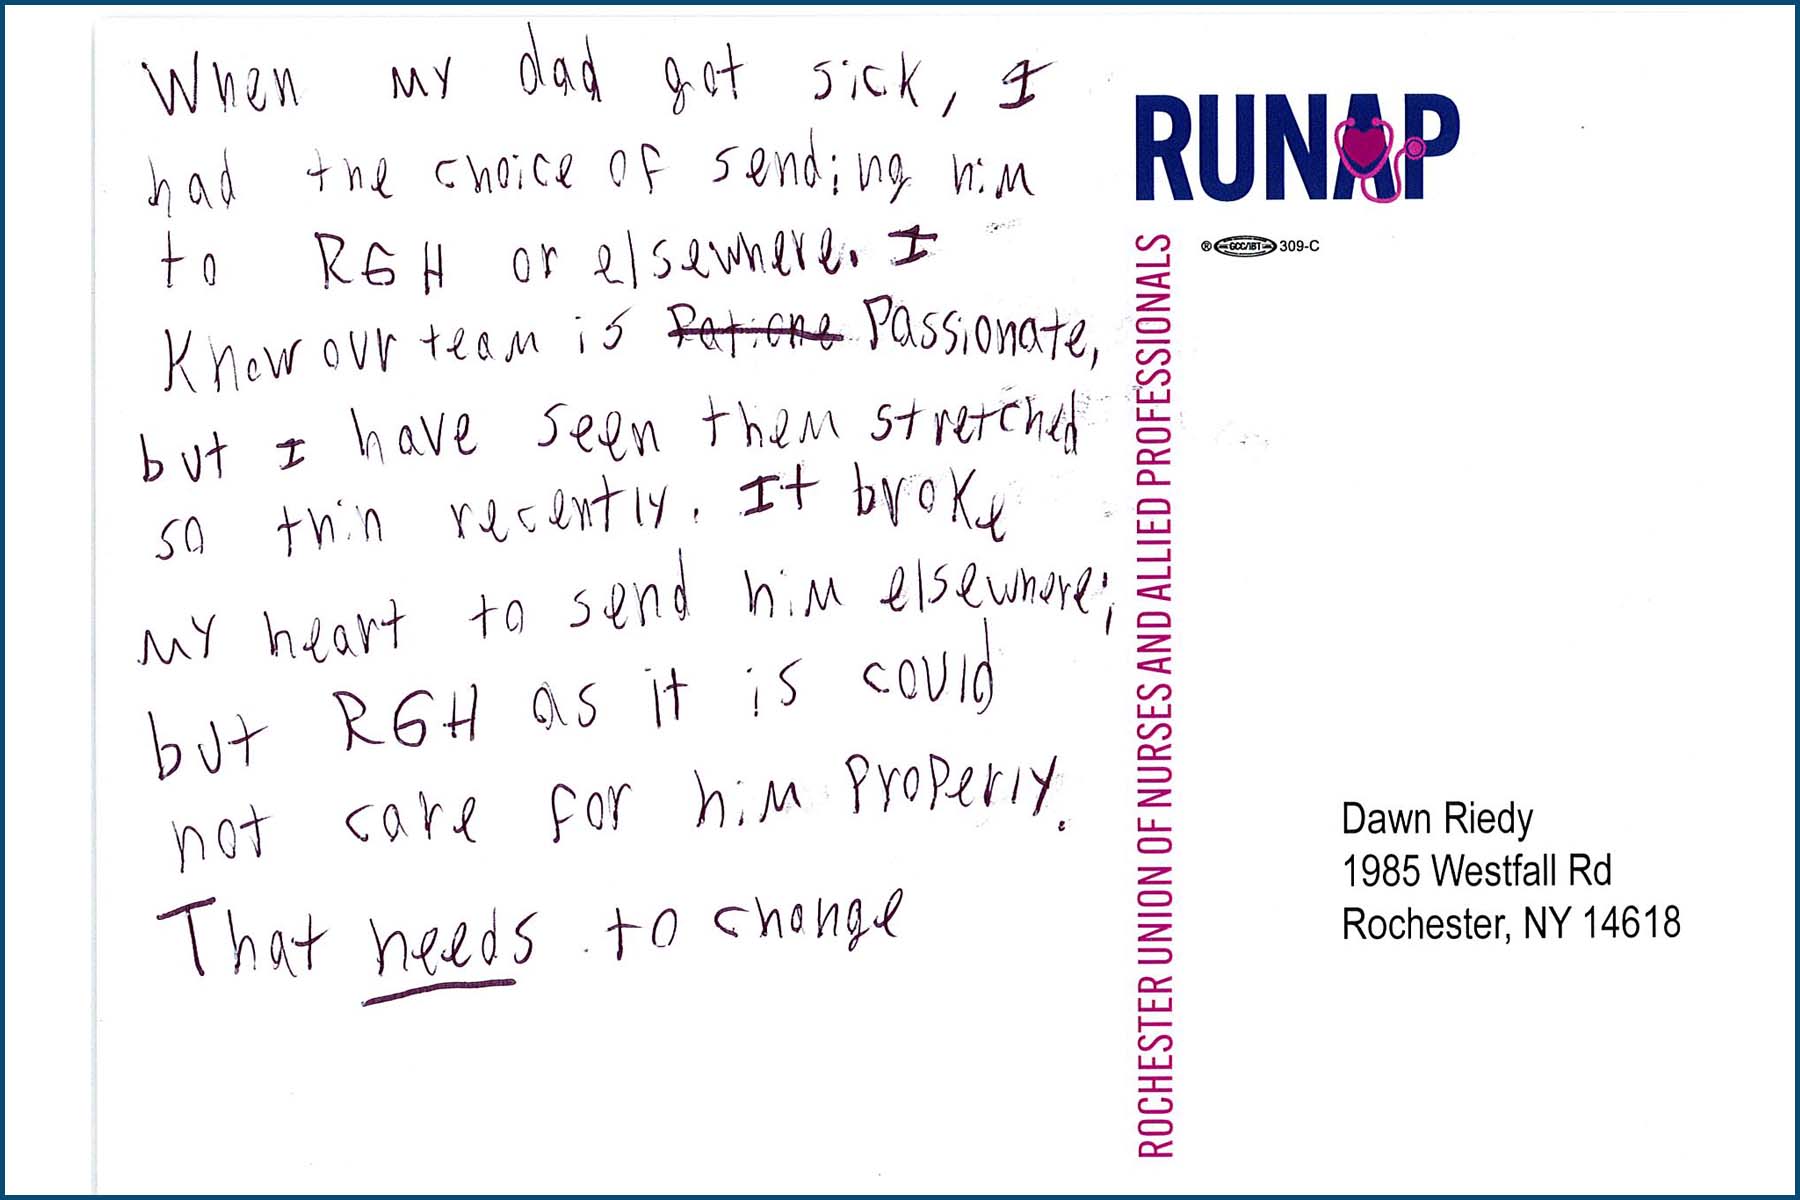 When my dad got sick, I
had the choice of sending him
to RGH or elsewhere. I
Know our team is Passionate,
but I have seen them stretched
so thin recently. It broke
my heart to send him elsewhere;
but RGH as it is could
not care for him Properly.
That needs to change
RUNAP
® GCC/IBT 309-C
ROCHESTER UNION OF NURSES AND ALLIED PROFESSIONALS
Dawn Riedy
1985 Westfall Rd
Rochester, NY 14618